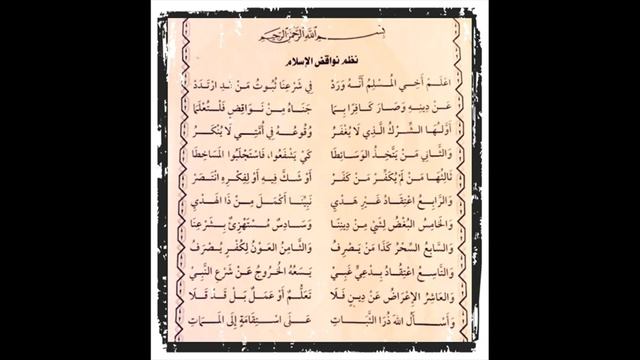 بِسْمِ اللَّهِ الرَّحْمَنِ الرَّحِيمِ
نظم نواقض الإسلام
اعْلَمْ أَخِي المُسْلِمُ أَنَّهُ وَرَدْ فِي شَرْعِنَا ثُبُوتُ مَنْ قَدِ ارْتَدَدْ
عَنْ دِينِهِ وَصَارَ كَافِرًا بِمَا جَنَاهُ مِنْ نَوَاقِضٍ فَلْتُعْلَمَا
أَوَّلُهَا الشِّرْكُ الَّذِي لَا يُغْفَرُ وُقُوعُهُ فِي أُمَّتِي لَا يُنْكَرُ
وَالثَّانِي مَنْ يَتَّخِذُ الوَسَائِطَا كَيْ يَشْفَعُوا، فَاسْتَجْلَبُوا المَسَاخِطَا
ثَالِثُهَا مَنْ لَمْ يُكَفِّرْ مَنْ كَفَرْ أَوْ شَكَّ فِيهِ أَوْ لِفِكْرِهِ انْتَصَرْ
وَالرَّابِعُ اعْتِقَادُ غَيْرِ هَدْيِ نَبِيِّنَا أَكْمَلُ مِنْ ذَا الهَدْيِ
وَالخَامِسُ البُغْضُ لِشَيْءٍ مِنْ دِينِنَا وَسَادِسٌ مُسْتَهْزِئٌ بِشَرْعِنَا
وَالسَّابِعُ السِّحْرُ كَذَا مَنْ يَصْرِفُ وَالثَّامِنُ العَوْنُ لِكُفْرٍ يُصْرَفُ
وَالتَّاسِعُ اعْتِقَادُ بِدْعِيٍّ غَبِيْ يَسَعُهُ الخُرُوجُ عَنْ شَرْعِ النَّبِيْ
وَالعَاشِرُ الإِعْرَاضُ عَنْ دِينٍ فَلَا تَعَلُّمٌ أَوْ عَمَلٌ بَلْ قَدْ قَلَا
وَأَسْأَلُ اللهَ ذُرَا الثَّبَاتِ عَلَى اسْتِقَامَةٍ إِلَى المَمَاتِ